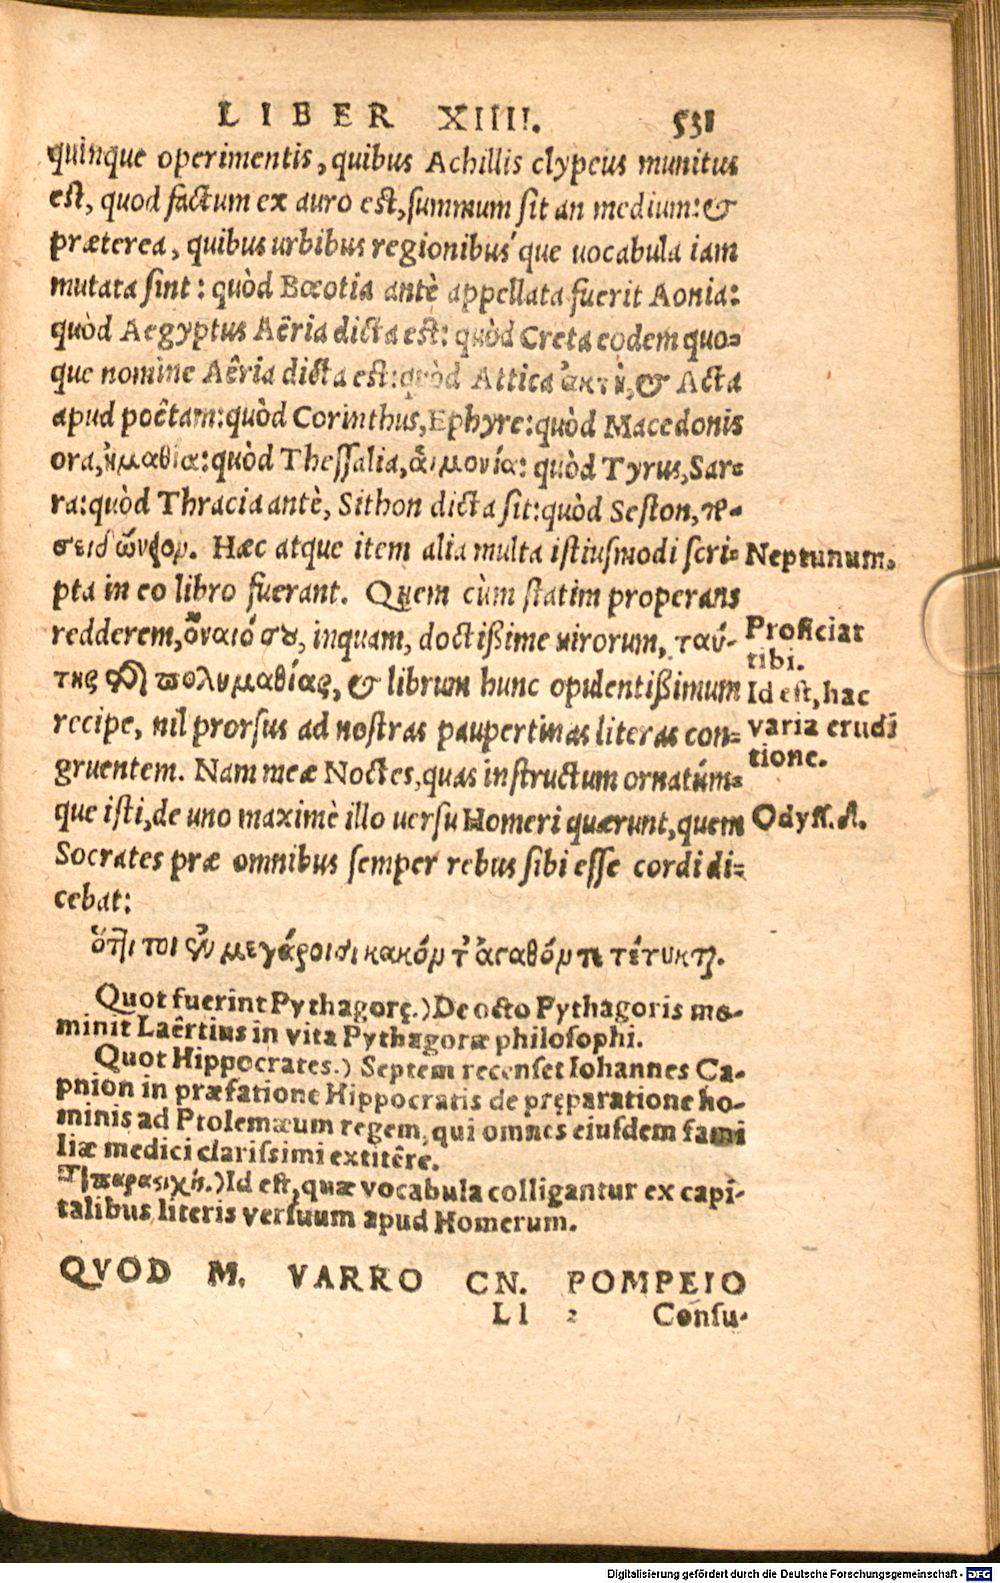 LIBER XIIII. 531
quinque operimentis, quibus Achillis clypeus munitus
est, quod factum ex auro est, summum sit an medium: &
præterea, quibus urbibus regionibus´que uocabula iam
mutata sint: quòd Bœotia antè appellata fuerit Aonia:
quòd Aegyptus Aêria dicta est: quòd Creta eodem quo=
que nomine Aêria dicta est: quòd Attica ἀκτὴ, & Acta
apud poêtam: quòd Corinthus, Ephyre: quòd Macedonis
ora, ἠμαθία: quòd Thessalia, ἁιμονία: quòd Tyrus, Sar=
ra: quòd Thracia antè, Sithon dicta sit: quòd Seston,
Hæc atque item alia multa istiusmodi scri=
pta in eo libro fuerant. Quem cùm statim properans
redderem, ὄναιό σου, inquam, doctißime uirorum, ταύ-
της πολυμαθίας, & librum hunc opulentißimum
recipe, nil prorsus ad nostras paupertinas literas con=
gruentem. Nam meæ Noctes, quas instructum ornatúm=
que isti, de uno maximè illo uersu Homeri quærunt, quem
Socrates præ omnibus semper rebus sibi esse cordi di=
cebat:
ὅτ]ι τοι ἐν μεγάροισι κακόν τ᾽ ἀγαθόν τε τέτυκται.
Neptunum.
Proficiat
tibi.
Id est, hac
varia erudi
tione.
Odyss. δ.
Quot fuerint Pythagorę.) De octo Pythagoris me-
minit Laêrtius in vita Pythagoræ philosophi.
Quot Hippocrates.) Septem recenset Iohannes Ca-
pnion in præfatione Hippocratis de pręparatione ho-
minis ad Ptolemæum regem, qui omnes eiusdem fami
liæ medici clarissimi extitêre.
παραστιχὶς.) Id est, quæ vocabula colligantur ex capi-
talibus literis versuum apud Homerum.
QVOD M. VARRO CN. POMPEIO
Ll 2 Consu-
Digitalisierung gefördert durch die Deutsche Forschungsgemeinschaft - DFG